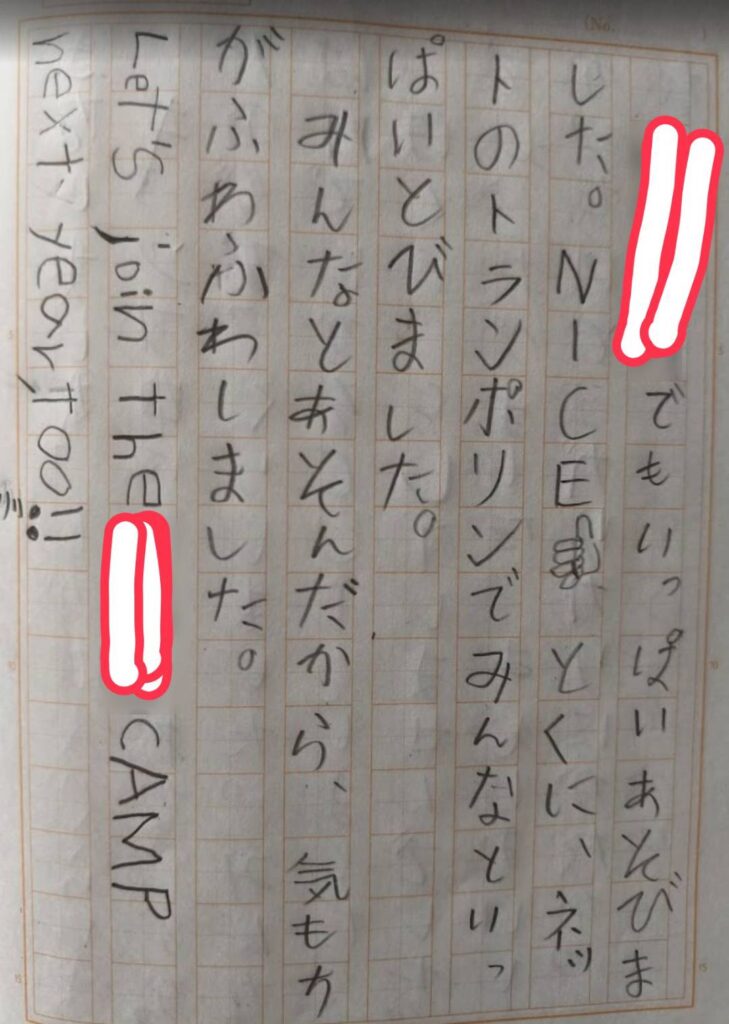 でもいっぱいあそびま
した。NICE👍とくに、ネッ
トのトランポリンでみんなといっ
ぱいとびました。
みんなとあそんだから、気もち
がふわふわしました。
Let's join the CAMP
next year, too!!